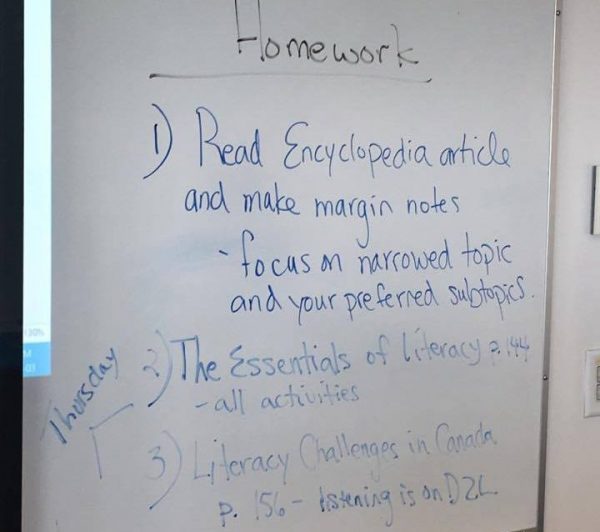 Homework
1) Read Encyclopedia article
and make margin notes
- focus on narrowed topic
and your preferred subtopics.
Thursday
2) The Essentials of Literacy p. 144
- all activities
3) Literacy Challenges in Canada
p. 156 - listening is on D2L